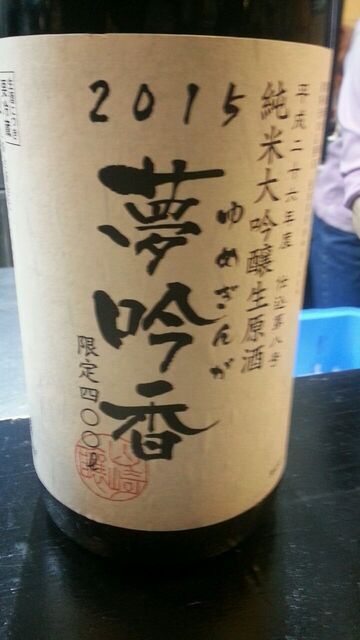 平成二十六年度 仕込第八号
純米大吟醸生原酒
2015
ゆめぎんが
夢吟香
限定四〇〇ℓ
要冷蔵